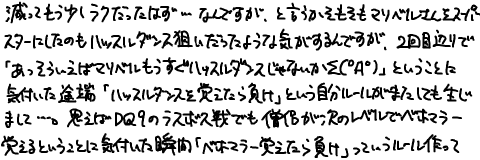 減ってもう少しラクだったはず…なんですが、と言うかそもそもマリベルさんをスーパー
スターにしたのもハッスルダンス狙いだったような気がするんですが、2回目辺りで
「あっそういえばマリベルもうすぐハッスルダンスじゃないかΣ(°A°)」ということに
気付いた途端「ハッスルダンスを覚えたら負け」という自分ルールがまたしても生じ
まして…。思えばDQ9のラスボス戦でも僧侶が次のレベルでベホマラー
覚えるということに気付いた瞬間「ベホマラー覚えたら負け」っていうルール作って